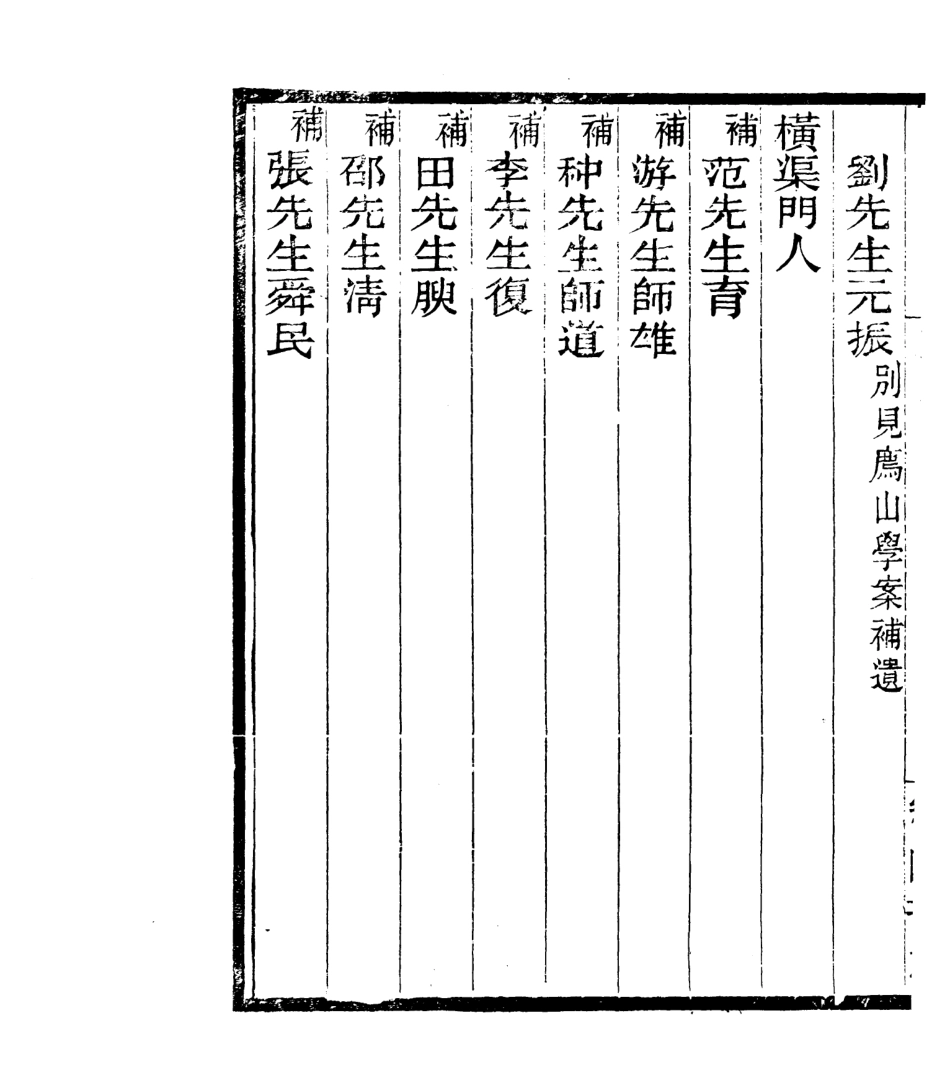 劉先生元振別見廌山學案補遺
橫渠門人
補范先生育
補游先生師雄
補种先生師道
補李先生復
補田先生腴
補邵先生淸
補張先生舜民